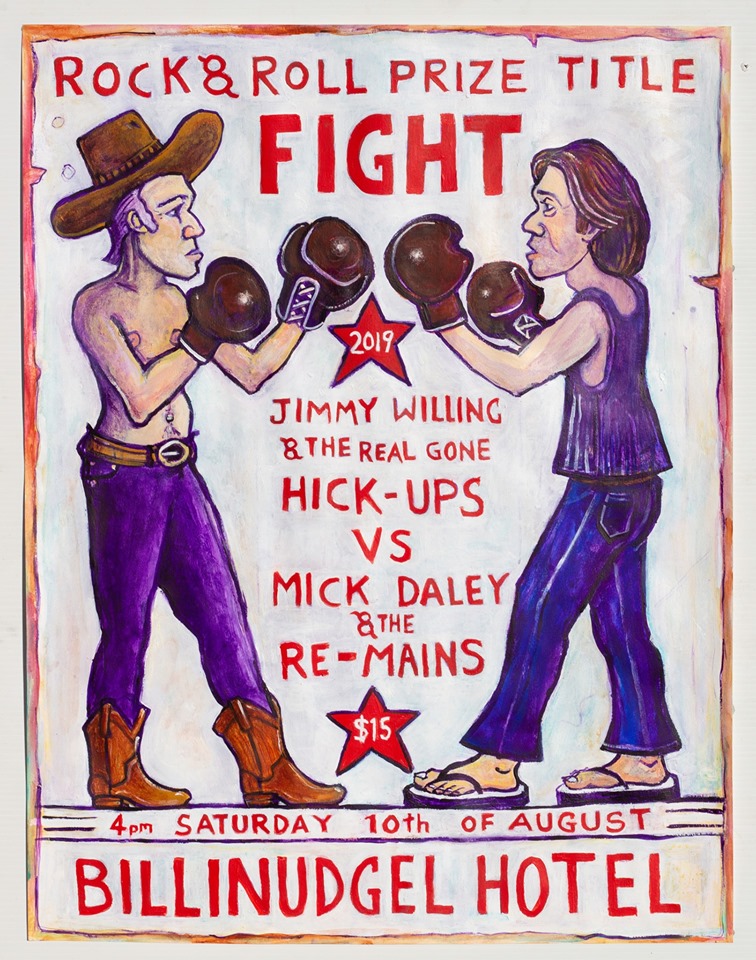 ROCK & ROLL PRIZE TITLE
FIGHT
2019
JIMMY WILLING
& THE REAL GONE
HICK-UPS
VS
MICK DALEY
& THE
RE-MAINS
$15
4pm SATURDAY 10th OF AUGUST
BILLINUDGEL HOTEL